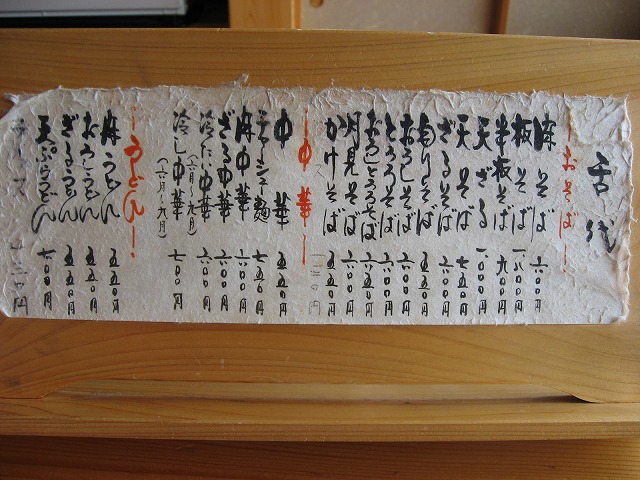 舌代
おそば
麻そば 六〇〇円
板そば 一、八〇〇円
半板そば 九〇〇円
天ざる 一、〇〇〇円
天そば 七五〇円
ざるそば 六〇〇円
もりそば 五五〇円
おろしそば 六〇〇円
とろろそば 六〇〇円
おろしとろろそば 六五〇円
月見そば 六〇〇円
かけそば
中華
中華 五五〇円
チャーシュー麺 七五〇円
麻中華 六〇〇円
ざる中華 六〇〇円
冷たい中華 六〇〇円
(六月〜九月)
冷し中華 七〇〇円
(六月〜九月)
うどん
麻うどん 六〇〇円
おろしうどん 五五〇円
ざるうどん 五五〇円
天ぷらうどん 七〇〇円